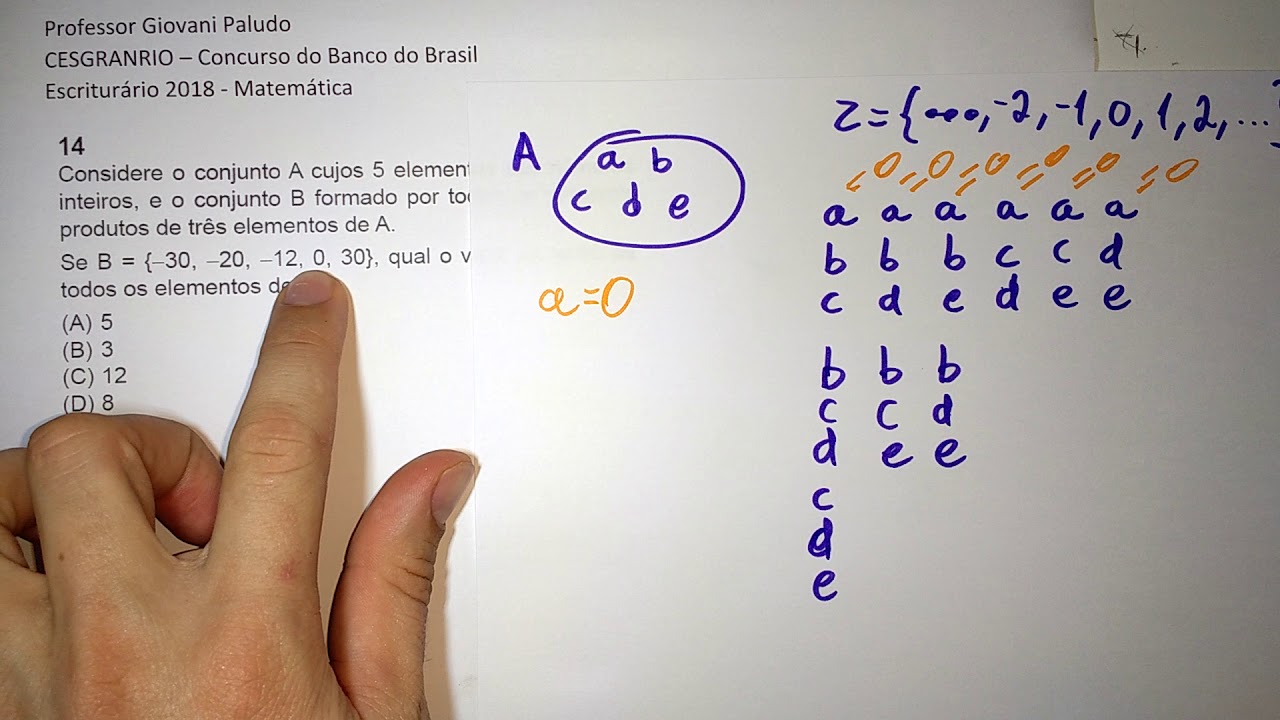 Professor Giovani Paludo
CESGRANRIO – Concurso do Banco do Brasil
Escriturário 2018 - Matemática
14
Considere o conjunto A cujos 5
inteiros, e o conjunto B formado por
produtos de três elementos de A.
Se B = {–30, –20, –12, 0, 30}, qual o
todos os elementos
(A) 5
(B) 3
(C) 12
(D) 8
A
a b
c d e
a=0
Z={..., -2, -1, 0, 1, 2, ...}
=0 =0 =0 =0 =0 =0
a a a a a a
b b b c c d
c d e d e e
b b b
c c d
d e e
c
d
e